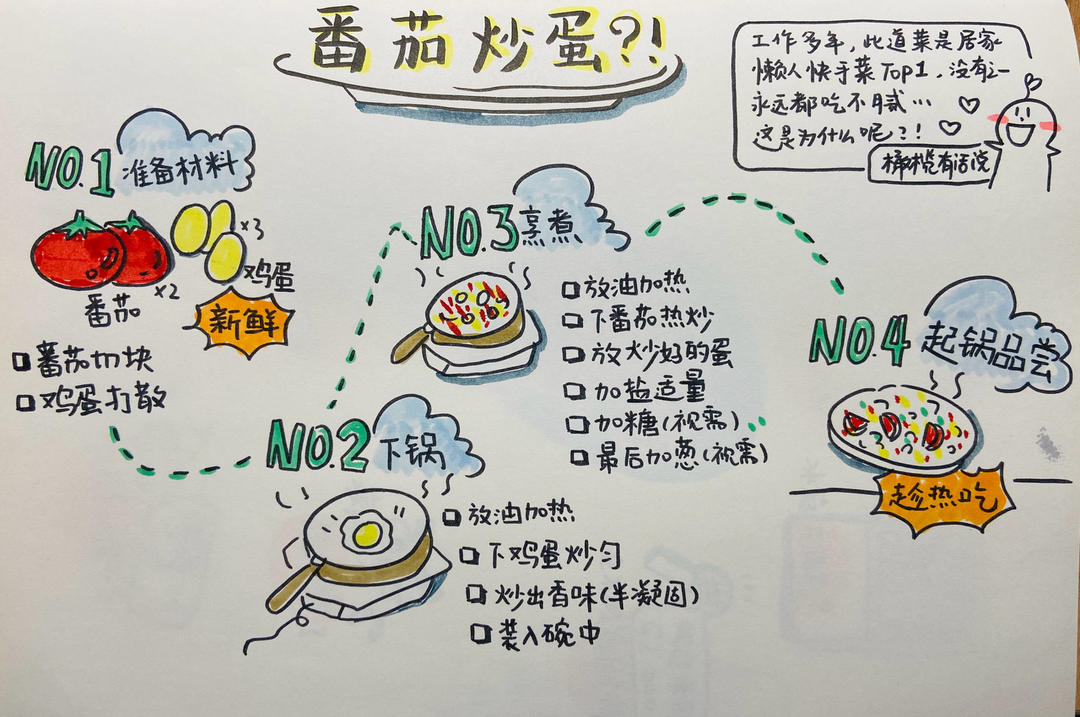 番茄炒蛋?!
工作多年，此道菜是居家
懒人快手菜Top1，没有之一
永远都吃不腻…
这是为什么呢?!
橄榄有话说
NO.1 准备材料
×3
鸡蛋
×2
番茄
新鲜
番茄切块
鸡蛋打散
NO.2 下锅
放油加热
下鸡蛋炒匀
炒出香味(半凝固)
装入碗中
NO.3 烹煮
放油加热
下番茄热炒
放炒好的蛋
加盐适量
加糖(视需)
最后加葱(视需)
NO.4 起锅品尝
趁热吃